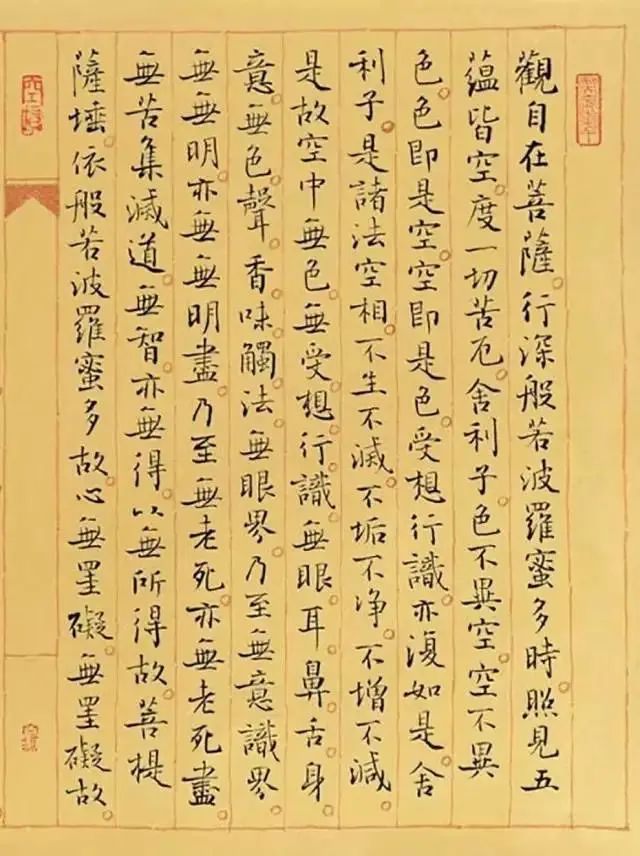 觀自在菩薩行深般若波羅蜜多時照見五
蘊皆空度一切苦厄舍利子色不異空空不異
色色即是空空即是色受想行識亦復如是舍
利子是諸法空相不生不滅不垢不净不增不減
是故空中無色無受想行識無眼耳鼻舌身
意無色聲香味觸法無眼界乃至無意識界
無無明亦無無明盡乃至無老死亦無老死盡
無苦集滅道無智亦無得以無所得故菩提
薩埵依般若波羅蜜多故心無罣礙無罣礙故